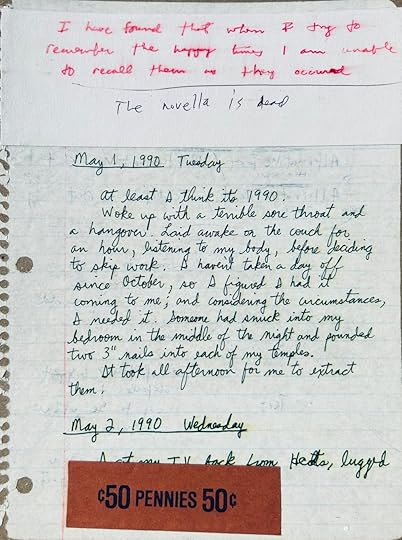 I have found that when I try to
remember the happy times I am unable
to recall them as they occured
The novella is dead
May 1, 1990 Tuesday
At least I think its 1990.
Woke up with a terrible sore throat and
a hangover. Laid awake on the couch for
an hour, listening to my body, before deciding
to skip work. I haven't taken a day off
since October, so I figured I had it
coming to me; and considering the circumstances,
I needed it. Someone had snuck into my
bedroom in the middle of the night and pounded
two 3" nails into each of my temples.
It took all afternoon for me to extract
them.
May 2, 1990 Wednesday
my T.V. back from lugged
¢50 PENNIES 50¢